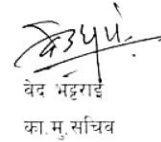 वेद भट्टराई
का.मु.सचिव